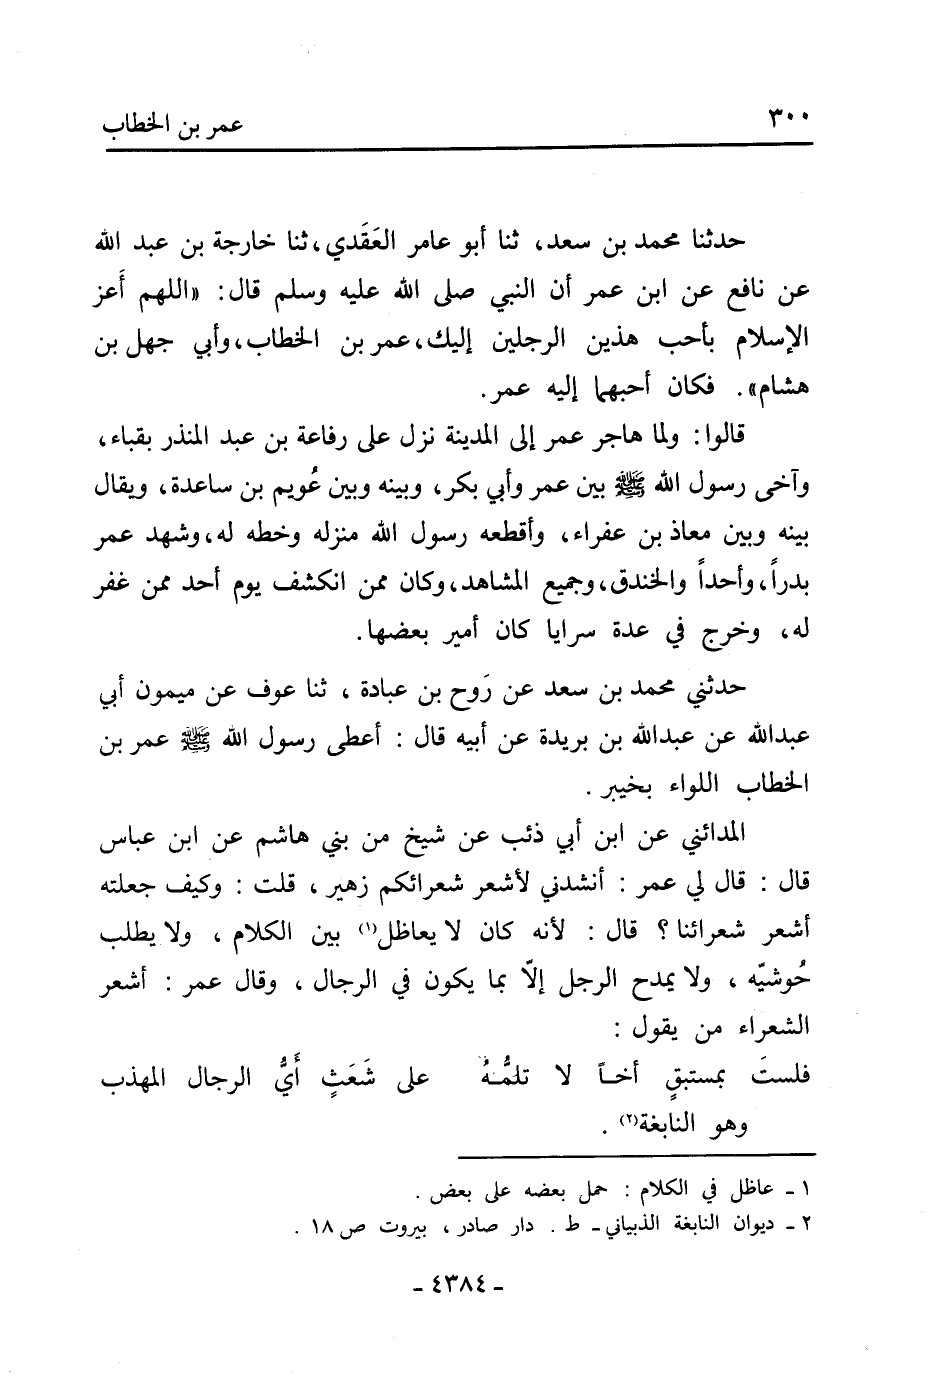 ٣٠٠ عمر بن الخطاب
حدثنا محمد بن سعد، ثنا أبو عامر العَقَدي، ثنا خارجة بن عبد الله
عن نافع عن ابن عمر أن النبي صلى الله عليه وسلم قال: «اللهم أَعز
الإسلام بأحب هذين الرجلين إليك، عمر بن الخطاب، وأبي جهل بن
هشام». فكان أحبهما إليه عمر.
قالوا: ولما هاجر عمر إلى المدينة نزل على رفاعة بن عبد المنذر بقباء،
وآخى رسول الله ﷺ بين عمر وأبي بكر، وبينه وبين عُويم بن ساعدة، ويقال
بينه وبين معاذ بن عفراء، وأقطعه رسول الله منزله وخطه له، وشهد عمر
بدراً، وأحداً والخندق، وجميع المشاهد، وكان ممن انكشف يوم أحد ممن غفر
له، وخرج في عدة سرايا كان أمير بعضها.
حدثني محمد بن سعد عن رَوح بن عبادة ، ثنا عوف عن ميمون أبي
عبدالله عن عبدالله بن بريدة عن أبيه قال : أعطى رسول الله ﷺ عمر بن
الخطاب اللواء بخيبر .
المدائني عن ابن أبي ذئب عن شيخ من بني هاشم عن ابن عباس
قال : قال لي عمر : أنشدني لأشعر شعرائكم زهير ، قلت : وكيف جعلته
أشعر شعرائنا ؟ قال : لأنه كان لا يعاظل(١) بين الكلام ، ولا يطلب
حُوشيّه ، ولا يمدح الرجل إلّا بما يكون في الرجال ، وقال عمر : أشعر
الشعراء من يقول :
فلستَ بمستبقٍ أخاً لا تلمُّهُ على شَعَثٍ أَيُّ الرجال المهذب
وهو النابغة(٢) .
١ ـ عاظل في الكلام : حمل بعضه على بعض .
٢ ـ ديوان النابغة الذبياني ـ ط . دار صادر ، بيروت ص ١٨ .
ـ ٤٣٨٤ ـ